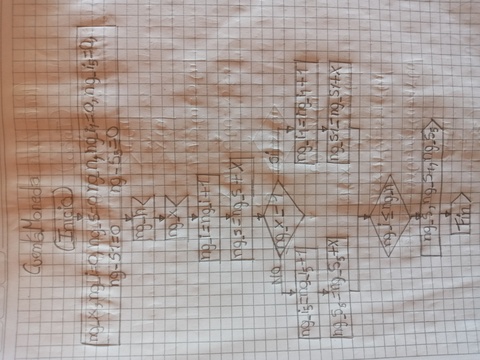 CuentaMoneda
Inicio
ng_x, ng_i=0, ng_s=0 ng_n, ng_i1=0, ng_i5=0,
ng_s1=0 ng_s5=0
ng_n
ng_x
ng_i=ng_i+1
ng_s=ng_s+x
NO ng_x=1 SI
ng_i5=ng_i5+1 ng_i1=ng_i1+1
ng_s5=ng_s5+x ng_s1=ng_s1+x
ng_i≤ng_n
ng_s, ng_s1, ng_s5
Fin